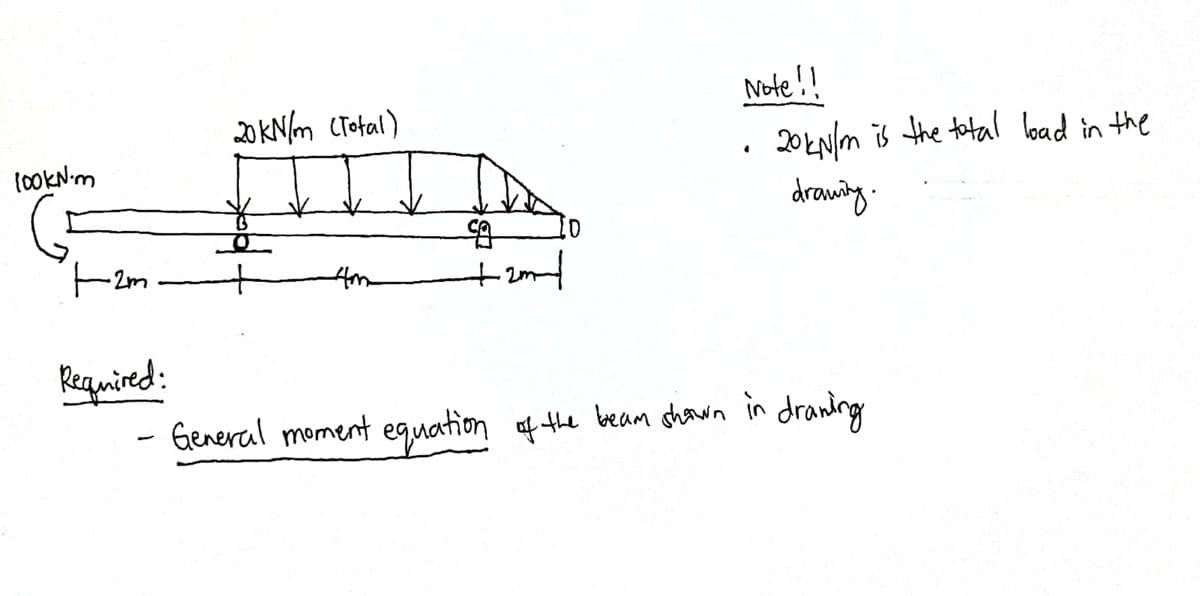 Note!!
20 kN/m (Total)
• 20 kN/m is the total load in the
drawing.
100kN·m
B
C
D
2m
4m
2m
Required:
- General moment equation of the beam shown in drawing